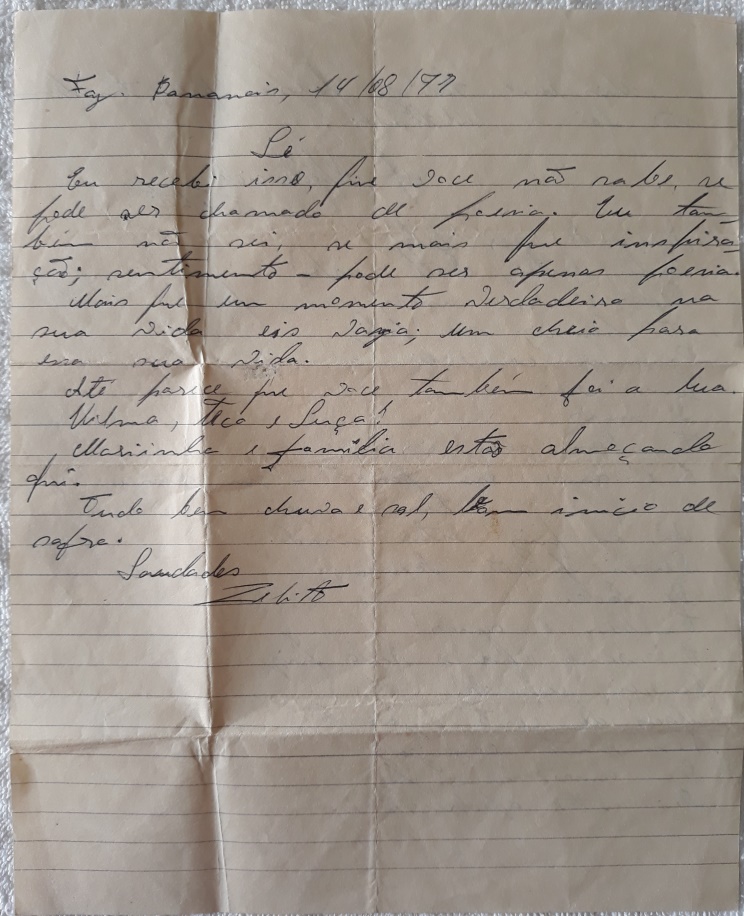 Faz. Paranais, 14/08/77
Lé
Eu recebi isso, que voce não sabe, se
pode ser chamado de poesia. Eu tam
bém não sei, se mais que inspira
ção; sentimento - pode ser apenas poesia.
Mais que um momento verdadeiro na
sua vida eis vazia; um cheio para
sua vida.
Até parece que voce também foi a lua.
Vilma, e
Mariinha e família estão almoçando
qui.
Tudo bem chuva e sol, bom inicio de
safra.
Saudades
Zelito